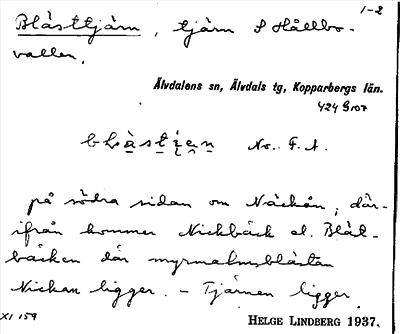 1-2
Blästtjärn, tjärn S Hållbo-
vallen.
Älvdalens sn, Älvdals tg, Kopparbergs län.
424 S107
No. F. A.
på södra sidan om Näckån, där-
ifrån kommer Nickbäck el. Bläst-
bäcken där myrmalmsblästan
Nickan ligger. - Tjärnen ligger
XI 159
HELGE LINDBERG 1937.